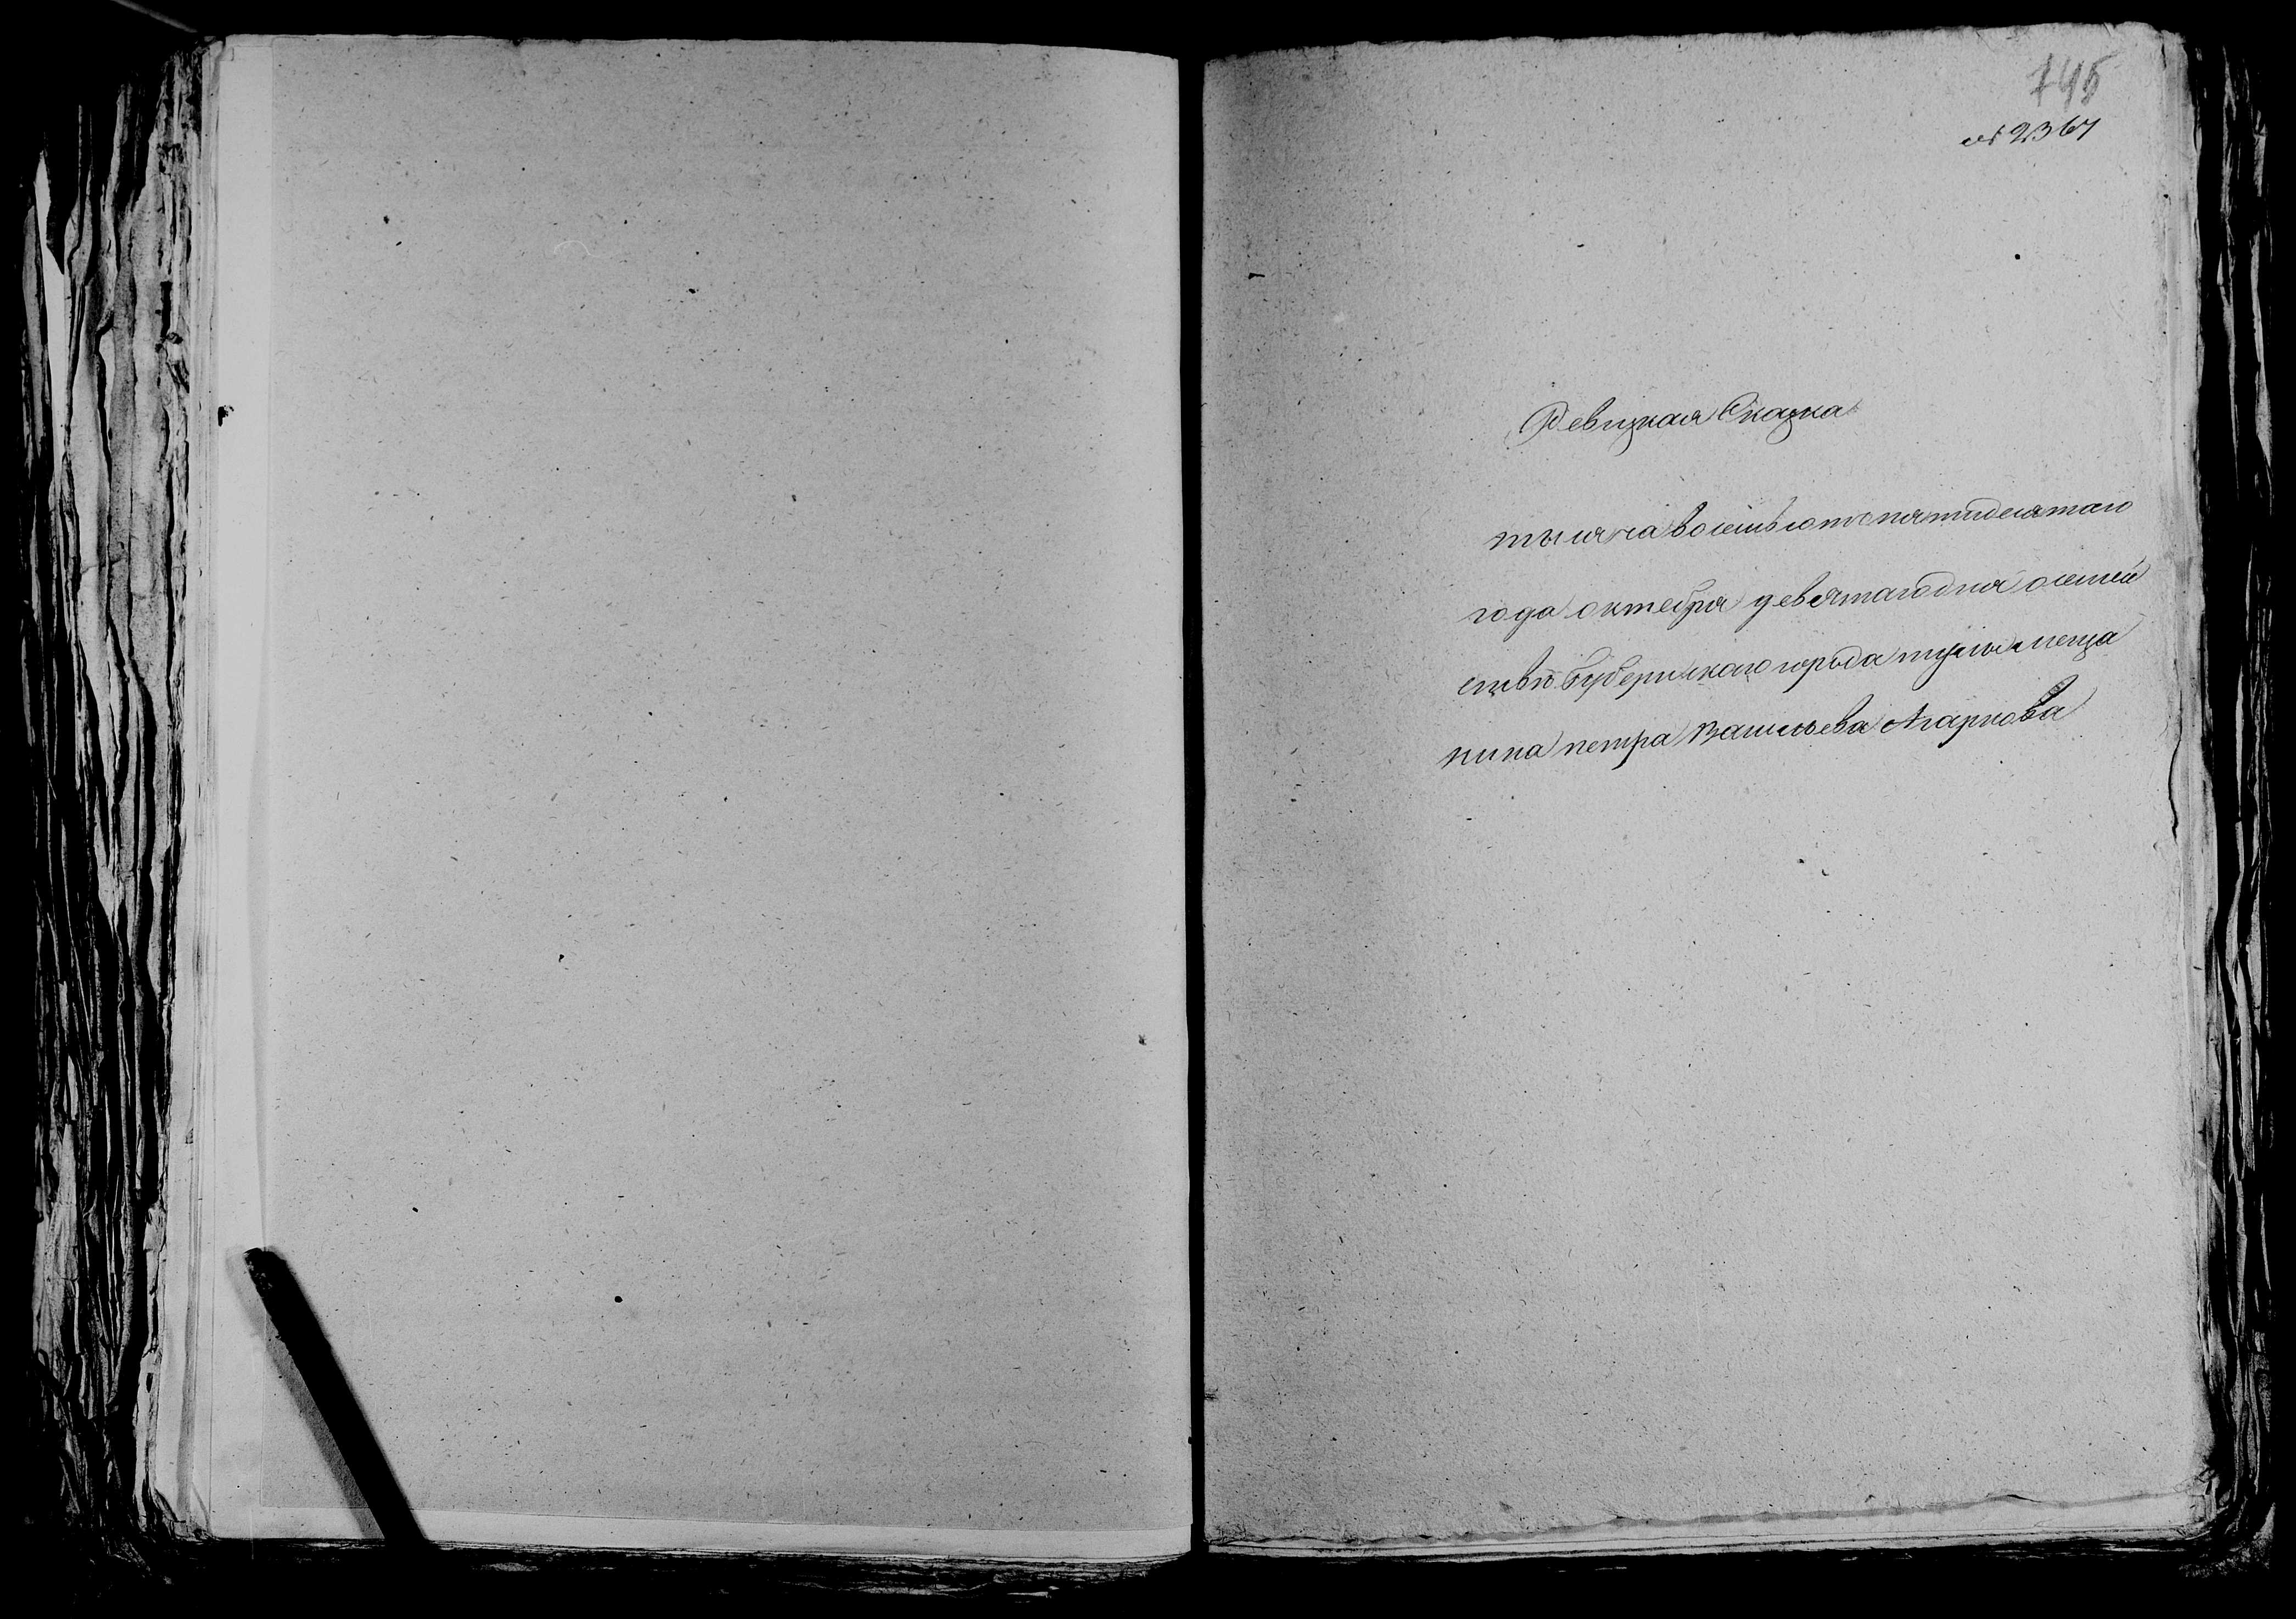 745
№ 2367
Ревизкая Сказка
тысяча восемьсот пятидесятаго
года октебря девятагодня осемей
ствѣ Губернскаго города тулы меща
нина петра Васильева Агаркова